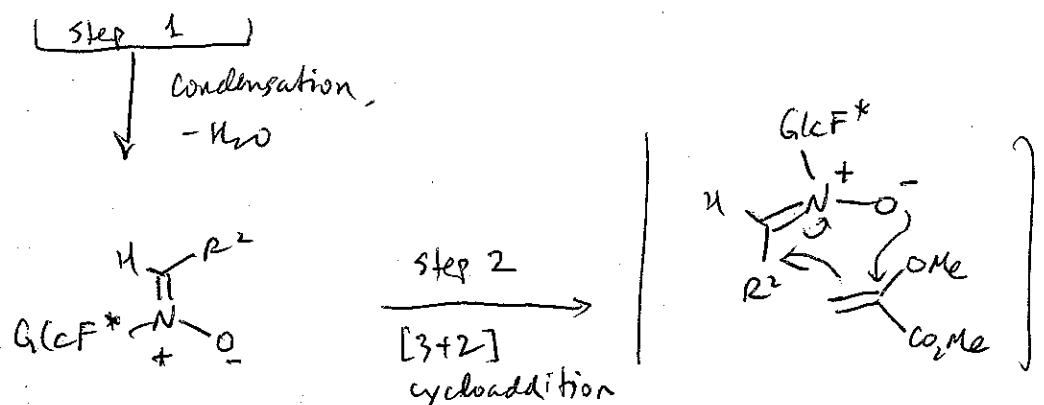 step 1
condensation,
- H₂O
H R²
GlcF* N O
+ -
step 2
[3+2]
cycloaddition
GlcF*
H N + O -
R² OMe
CO₂Me